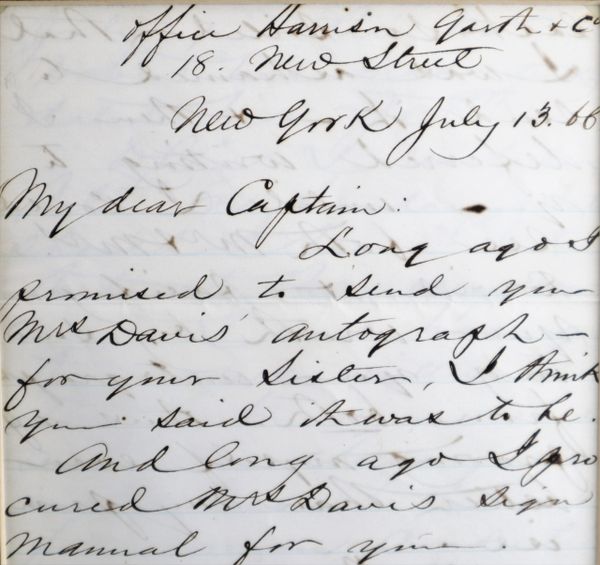 Office Harrison Garth & Co
18. New Street
New York July 13. 66
My dear Captain:
Long ago I
promised to send you
Mrs Davis' autograph —
for your sister, I think
you said it was to be.
And long ago I pro
cured Mrs Davis sign
manual for you.